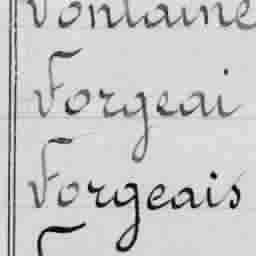 Fontaine
Forgeai
Forgeais